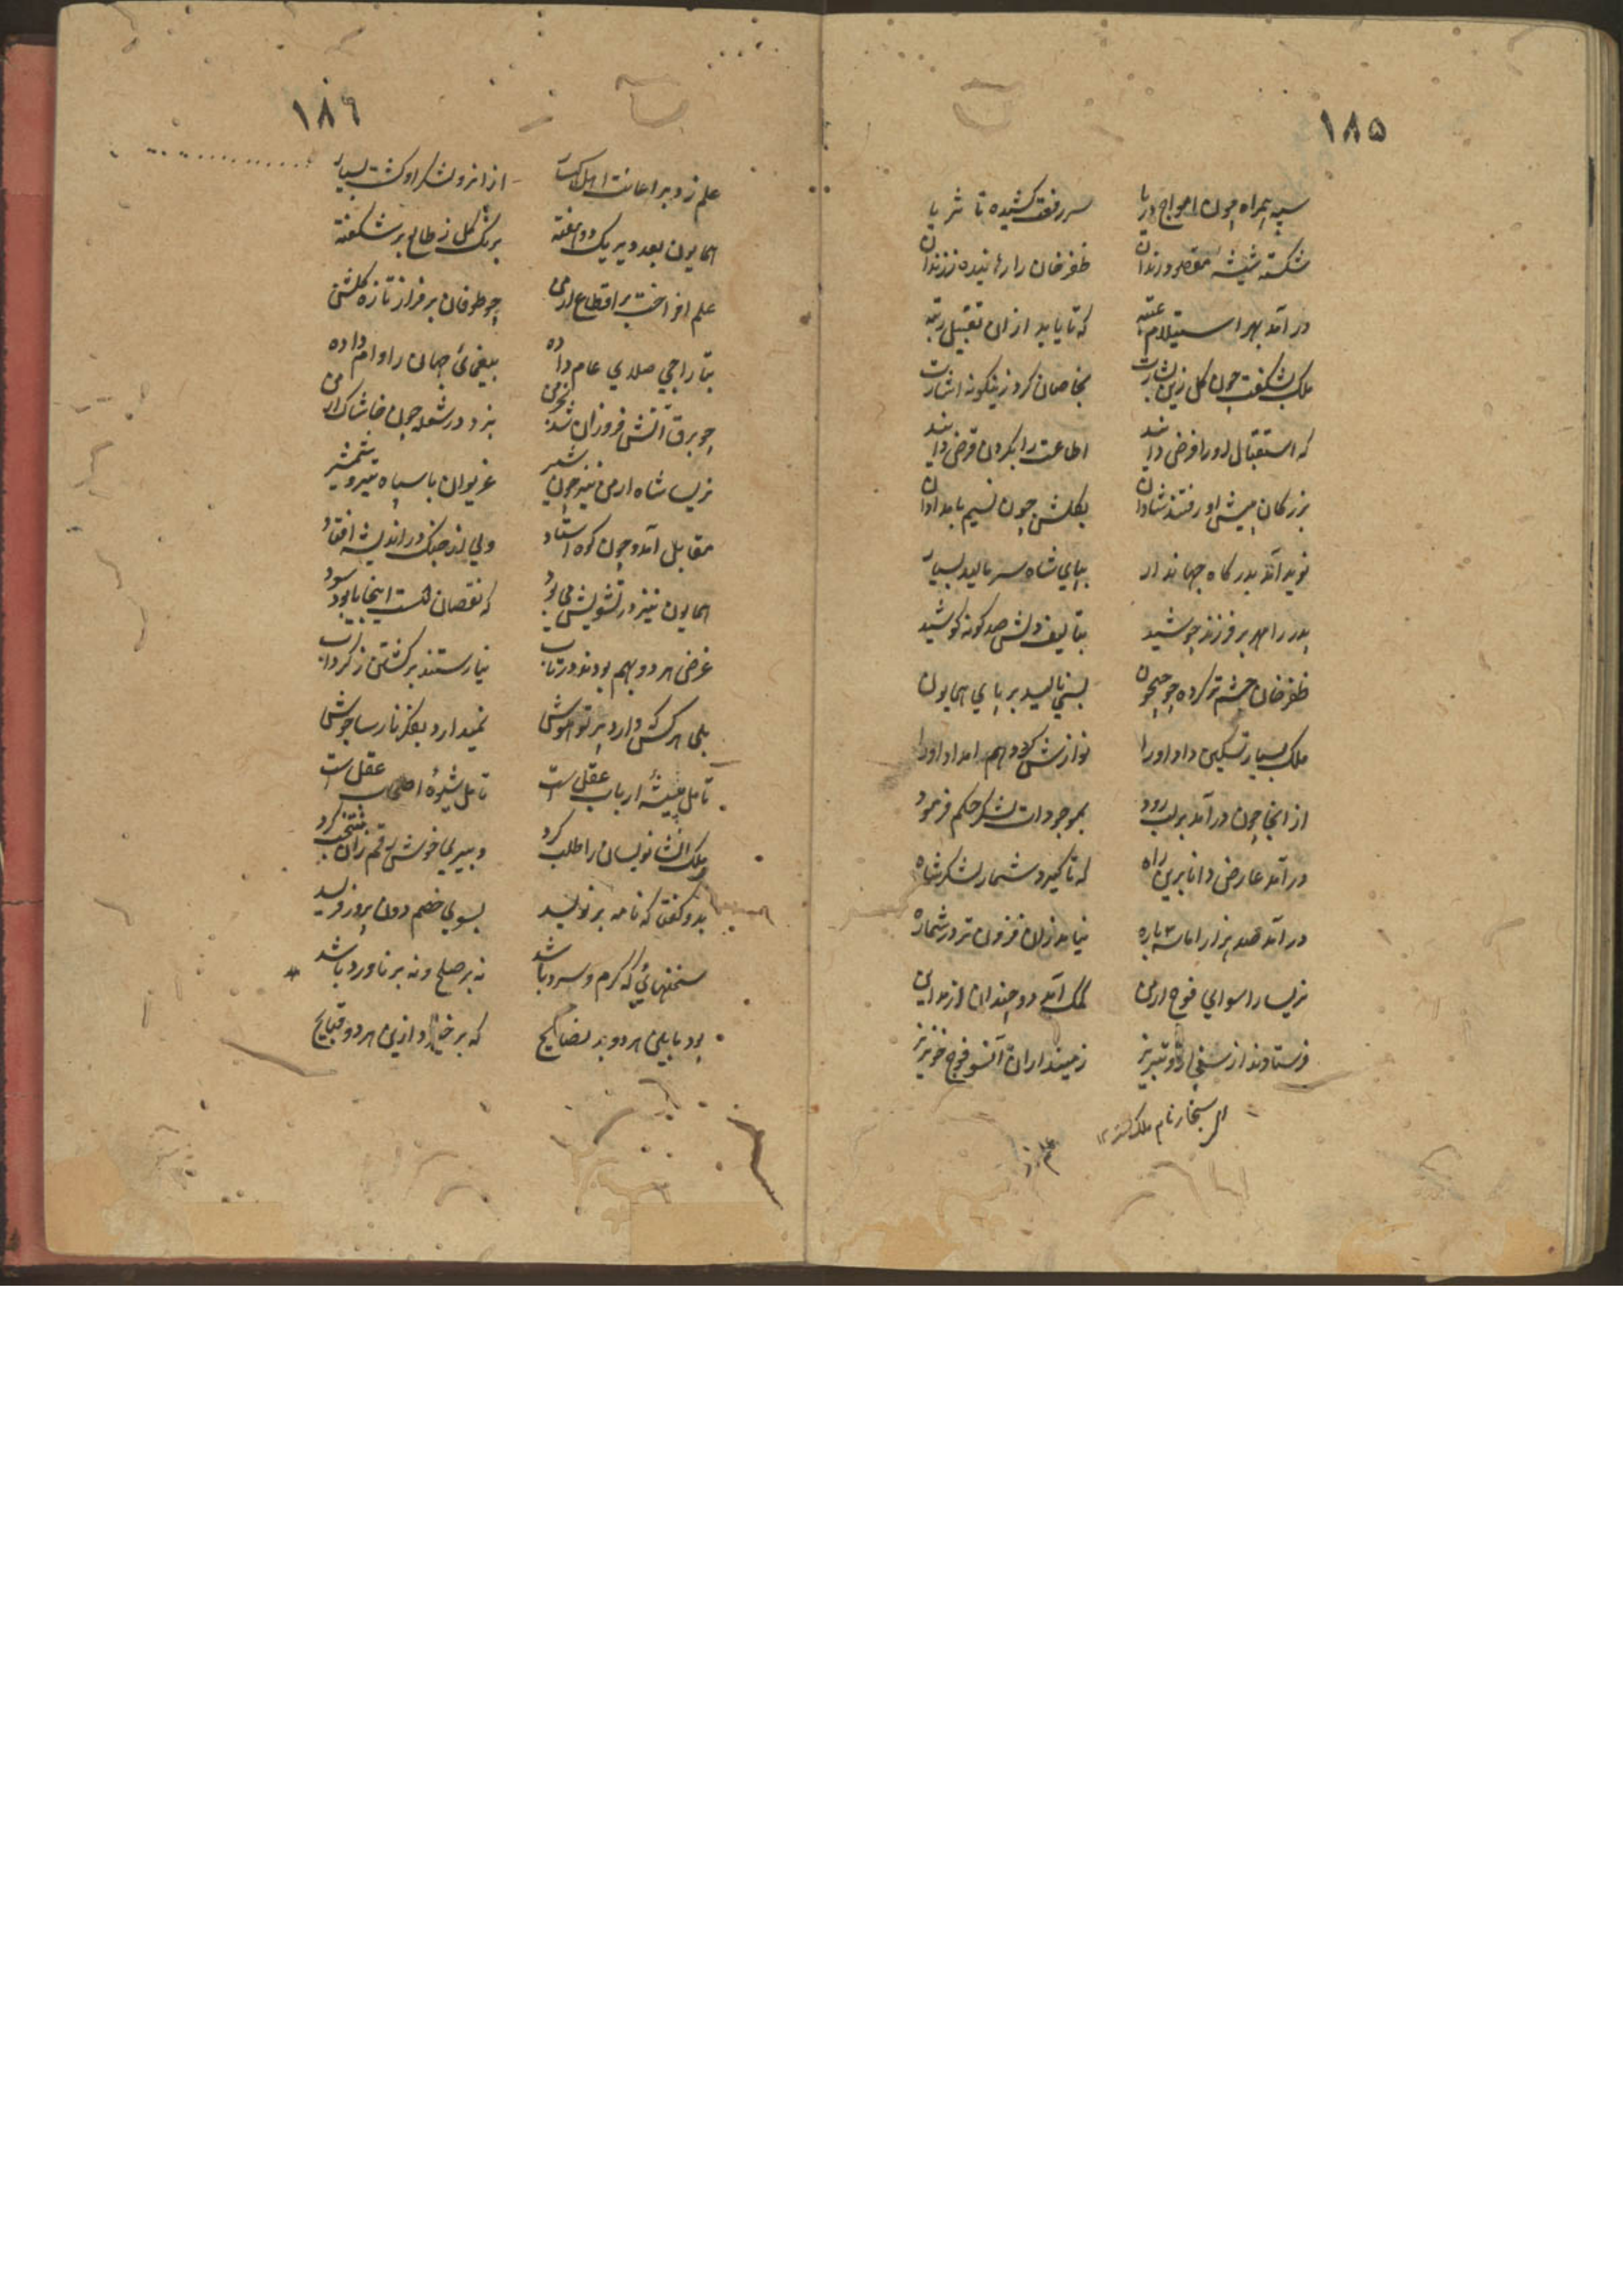 ۱۸۵
سپه همراه چون امواج دریا سر رفعت کشیده تا ثریا
شکسته شیشه قصر و زندان ظفرخان را رهانیده ز زندان
در آمد بهر استیلام عتبه که تا یابد ازان تقبیل رتبه
ملک بشکفت چون گل زین بشارت بخاصان کرد زینگونه اشارت
که استقبال او را فرض دانند اطاعت را بگردن قرض دانند
بزرگان پیش او رفتند شادان بگلشن چون نسیم بامدادان
نوید آمد بدرگاه جهاندار بپای شاه سر مالید بسیار
پدر را مهر بر فرزند جوشید بتالیف دلش صد گونه کوشید
ظفرخان چشم تر کرده چو جیحون بسی نالید بر پای همایون
ملک بسیار تسکین داد او را نوازش کرد و هم امداد او را
از انجا چون در آمد بر لب رود بموجودات لشکر حکم فرمود
در آمد عارض دانا برین راه که تا گیرد شمار لشکر شاه
در آمد هزار اما سه باره نیامد زان فزون تر در شماره
نریسا را سوای فوج ارمن کمک آمد دو چندان از
فرستادند از سنجار و تبریز زمینداران آنسو فوج خونریز
سنجار نام ملک
۱۸۶
علم زد بر اعانت از انرو لشکر او گشت بسیار
همایون بعد دیر یک دو هفته برنگ گل ز طالع بر شکفته
علم افراخت بر اقطاع ارمن چو طوفان بر فراز تازه گلشن
بتاراجی صلای عام داده بیغمای جهان را وام داده
چو برق آتش فروزان شد بخرمن بزد در شعله چون خاشاک ارمن
نریسا شاه ارمن نیز چون شیر غریوان با سپاه تیر و شمشیر
مقابل آمد و چون کوه استاد ولی از جنگ در اندیشه افتاد
همایون نیز در تشویش می بود که نقصان است اینجا یا بود سود
غرض هر دو بهم بودند در تاب نیارستند برگشتن ز گرداب
بلی هر کس که دارد پرتو هوش نمیدارد بفکر نارسا جوش
تامل پیشهٔ ارباب عقل است تامل شیوهٔ اصحاب عقل است
ملک انشا نویسان را طلب کرد دبیریها خوش رقم زان منتخب کرد
بدو گفت که نامه بر نویسد بسوی خصم دون پرور نویسد
سخنهائی که گرم و سرد باشد نه بر صلح و نه بر ناورد باشد
بود با یلی هر دو بد نصایح که برخیزد ازین هر دو قبایح